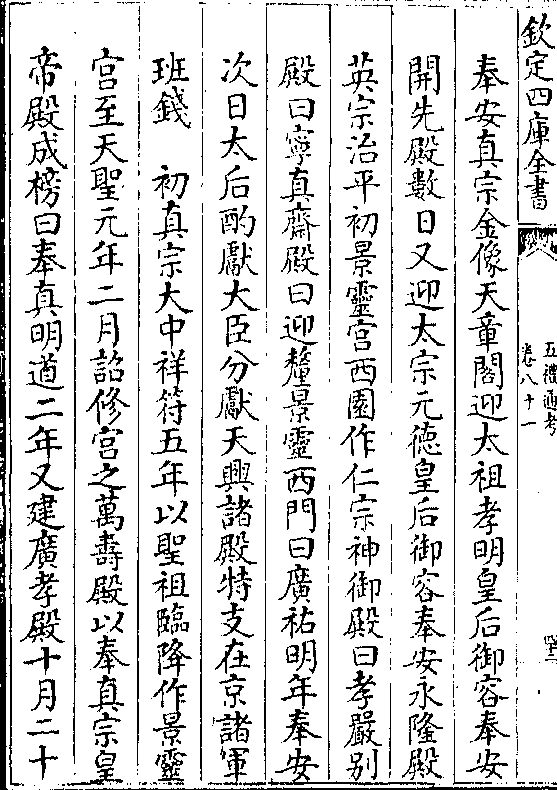 欽定四庫全書
五禮通考
卷八十一
奉安真宗金像天章閣迎太祖孝明皇后御容奉安
開先殿數日又迎太宗元德皇后御容奉安永隆殿
英宗治平初景靈宮西園作仁宗神御殿曰孝嚴别
殿曰寧真齋殿曰迎釐景靈西門曰廣祐明年奉安
次日太后酌獻大臣分獻天興諸殿特支在京諸軍
班錢　初真宗大中祥符五年以聖祖臨降作景靈
宮至天聖元年二月詔修宮之萬壽殿以奉真宗皇
帝殿成榜曰奉真明道二年又建廣孝殿十月二十